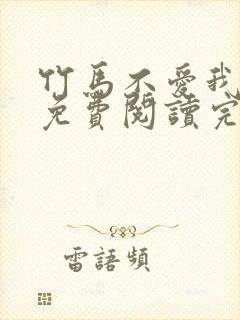 竹馬不愛我
免費閱讀完
雷語頻